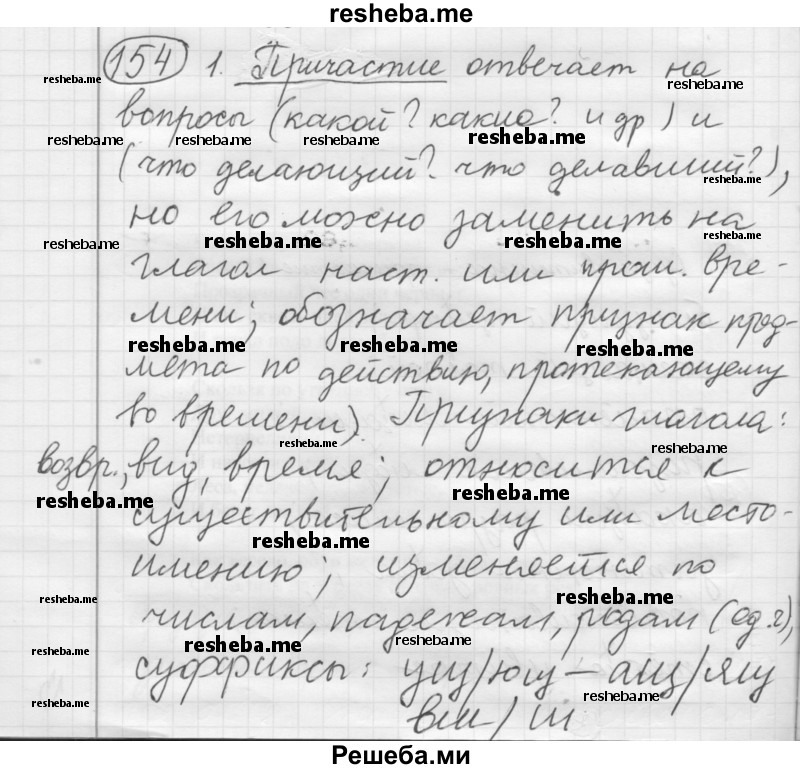 resheba.me
154 1. Причастие отвечает на
resheba.me resheba.me
вопросы (какой? какие? и др) и
resheba.me resheba.me resheba.me resheba.me
(что делающий? что делавший?),
resheba.me
но его можно заменить на
resheba.me resheba.me resheba.me resheba.me
глагол наст. или прош. вре-
мени; обозначает признак пред-
resheba.me resheba.me resheba.me
мета по действию, протекающему
во времени). Признаки глагола:
resheba.me resheba.me
возвр., вид, время; относится к
resheba.me resheba.me
существительному или место-
resheba.me
имению; изменяется по
resheba.me resheba.me
числам, падежам, родам (ед.ч),
resheba.me resheba.me resheba.me
суффиксы: ущ/ющ – ащ/ящ
resheba.me resheba.me
вш/ш
Решеба.ми